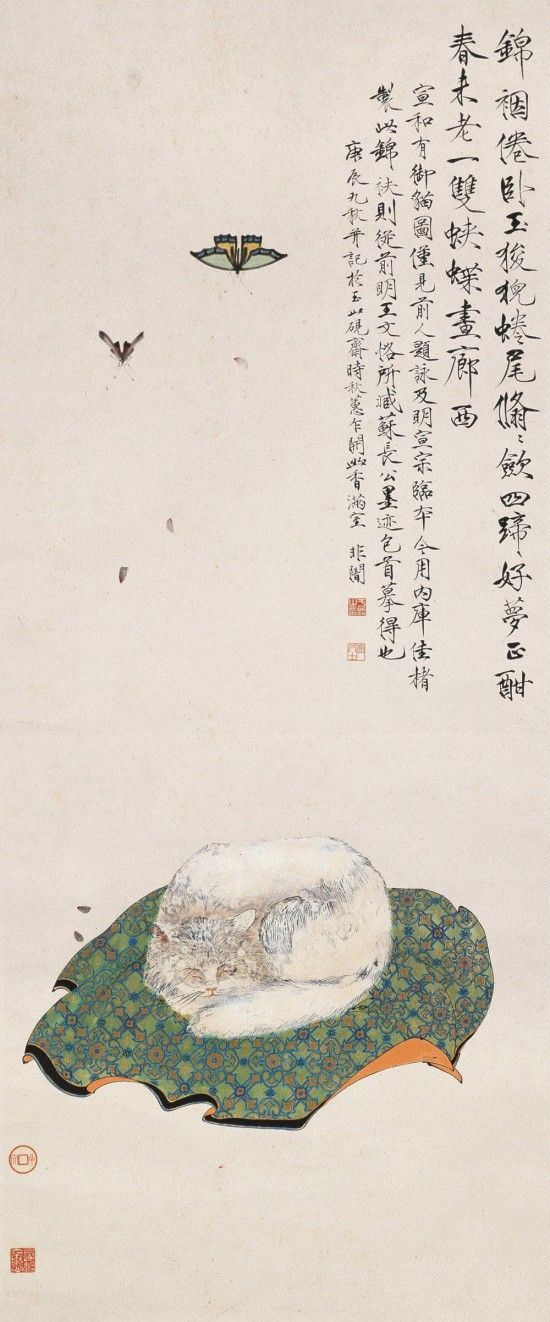 錦裀倦卧玉狻猊蜷尾偹〻斂四蹄好夢正酣
春未老一雙蛺蝶畫廊西
宣和有御貓圖僅見前人題詠及明宣宗臨本今用內庫佳楮
製此錦袱則從前明王文恪所臧蘇長公墨迹包首摹得也
庚辰九秋并記於玉山硯齋時秋蕙乍開幽香滿室 非闇